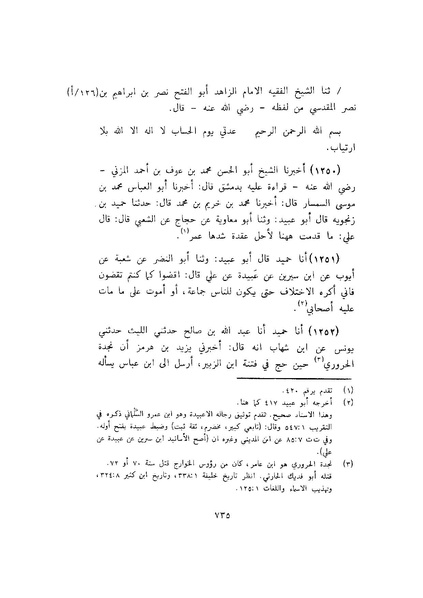 / ثنا الشيخ الفقيه الامام الزاهد أبو الفتح نصر بن ابراهيم بن (١٢٦/أ)
نصر المقدسي من لفظه – رضي الله عنه – قال.
بسم الله الرحمن الرحيم عدتي يوم الحساب لا اله الا الله بلا
ارتياب.
(١٢٥٠) أخبرنا الشيخ أبو الحسن محمد بن عوف بن أحمد المزني –
رضي الله عنه – قراءة عليه بدمشق قال: أخبرنا أبو العباس محمد بن
موسى السمسار قال: أخبرنا محمد بن خريم بن محمد قال: حدثنا حميد بن
زنجويه قال أبو عبيد: وثنا أبو معاوية عن حجاج عن الشعبي قال: قال
علي: ما قدمت ههنا لأحل عقدة شدها عمر(١).
(١٢٥١) أنا حميد قال أبو عبيد: وثنا أبو النضر عن شعبة عن
أيوب عن ابن سيرين عن عَبيدة عن علي قال: اقضوا كما كنتم تقضون
فاني أكره الاختلاف حتى يكون للناس جماعة، أو أموت على ما مات
عليه أصحابي(٢).
(١٢٥٢) أنا حميد أنا عبد الله بن صالح حدثني الليث حدثني
يونس عن ابن شهاب انه قال: أخبرني يزيد بن هرمز أن نجدة
الحروري(٣) حين حج في فتنة ابن الزبير، أرسل الى ابن عباس يسأله
(١) تقدم برقم ٤٢٠.
(٢) أخرجه أبو عبيد ٤١٧ كما هنا.
وهذا الاسناد صحيح. تقدم توثيق رجاله الا عبيدة وهو ابن عمرو السَّلْماني ذكره في
التقريب ١:٥٤٧ وقال: (تابعي كبير، مخضرم، ثقة ثبت) وضبط عبيدة بفتح أوله.
وفي ت ت ٧:٨٥ عن ابن المديني وغيره ان (أصح الأسانيد ابن سرين عن عبيدة عن
علي).
(٣) نجدة الحروري هو ابن عامر، كان من رؤوس الخوارج قتل سنة ٧٠ أو ٧٢.
قتله أبو فديك الحارثي. انظر تاريخ خليفة ١:٣٣٨، وتاريخ ابن كثير ٨:٣٢٤،
وتهذيب الاسماء واللغات ١:١٢٥.
٧٣٥